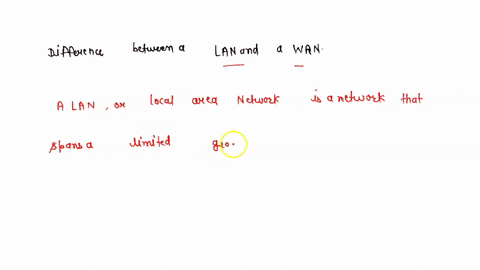 Difference between a LAN and a WAN.
A LAN, or local area Network is a network that
spans a limited geo.